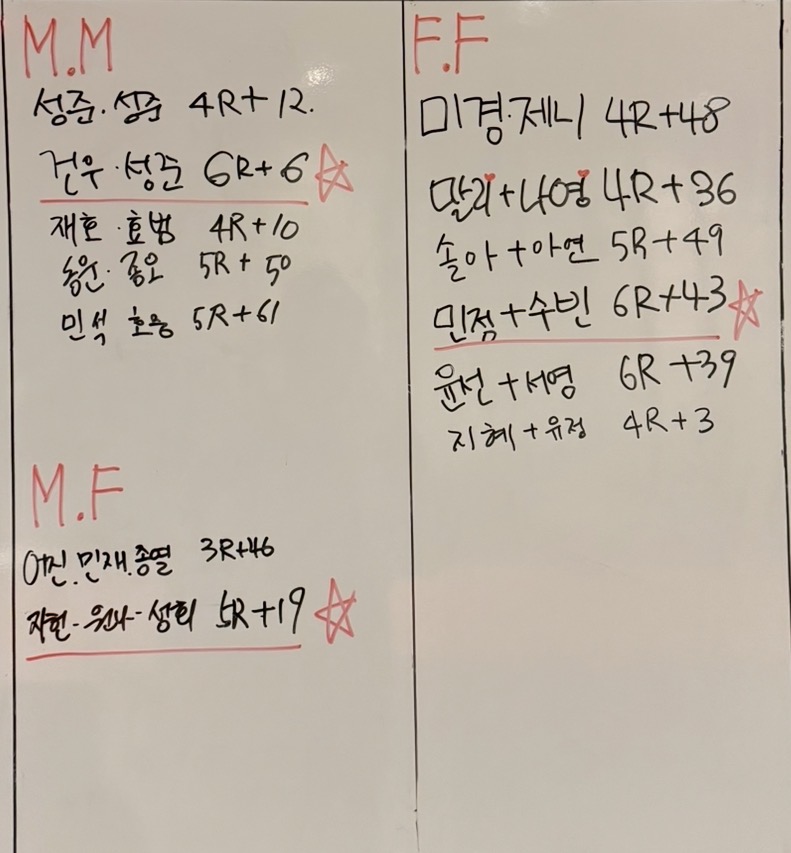 M.M
성준.성준 4R+12.
건우.성준 6R+6
재호.효범 4R+10
5R+50
민석 호승 5R+61
M.F
어진.민재.종열 3R+46
5R+19
F.F
미경.제니 4R+48
말리+나영 4R+36
솔아+아연 5R+49
민점+수빈 6R+43
윤선+서영 6R+39
지혜+유정 4R+3